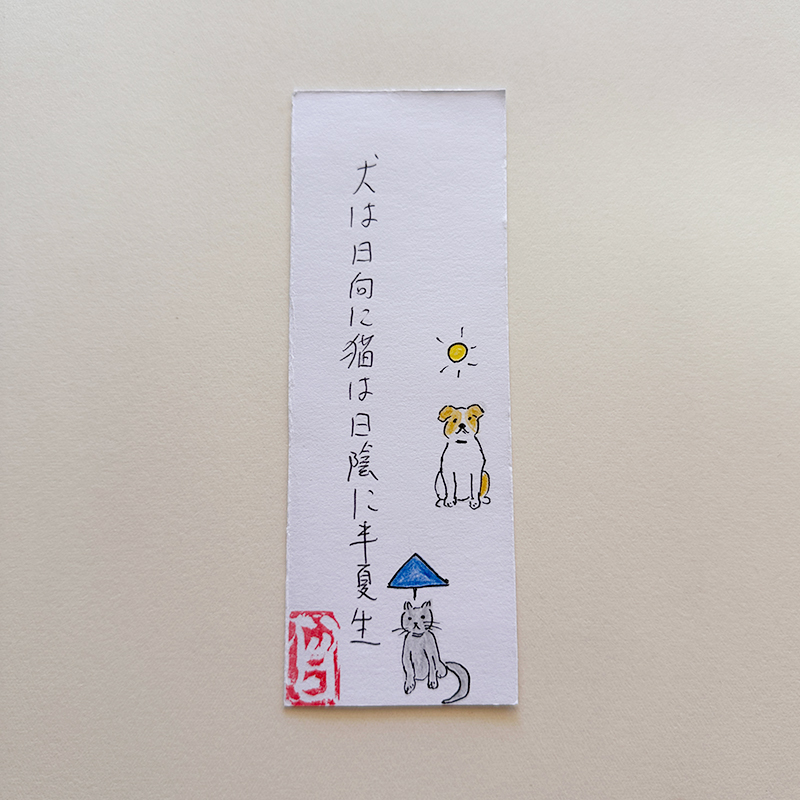 犬は日向に猫は日陰に半夏生